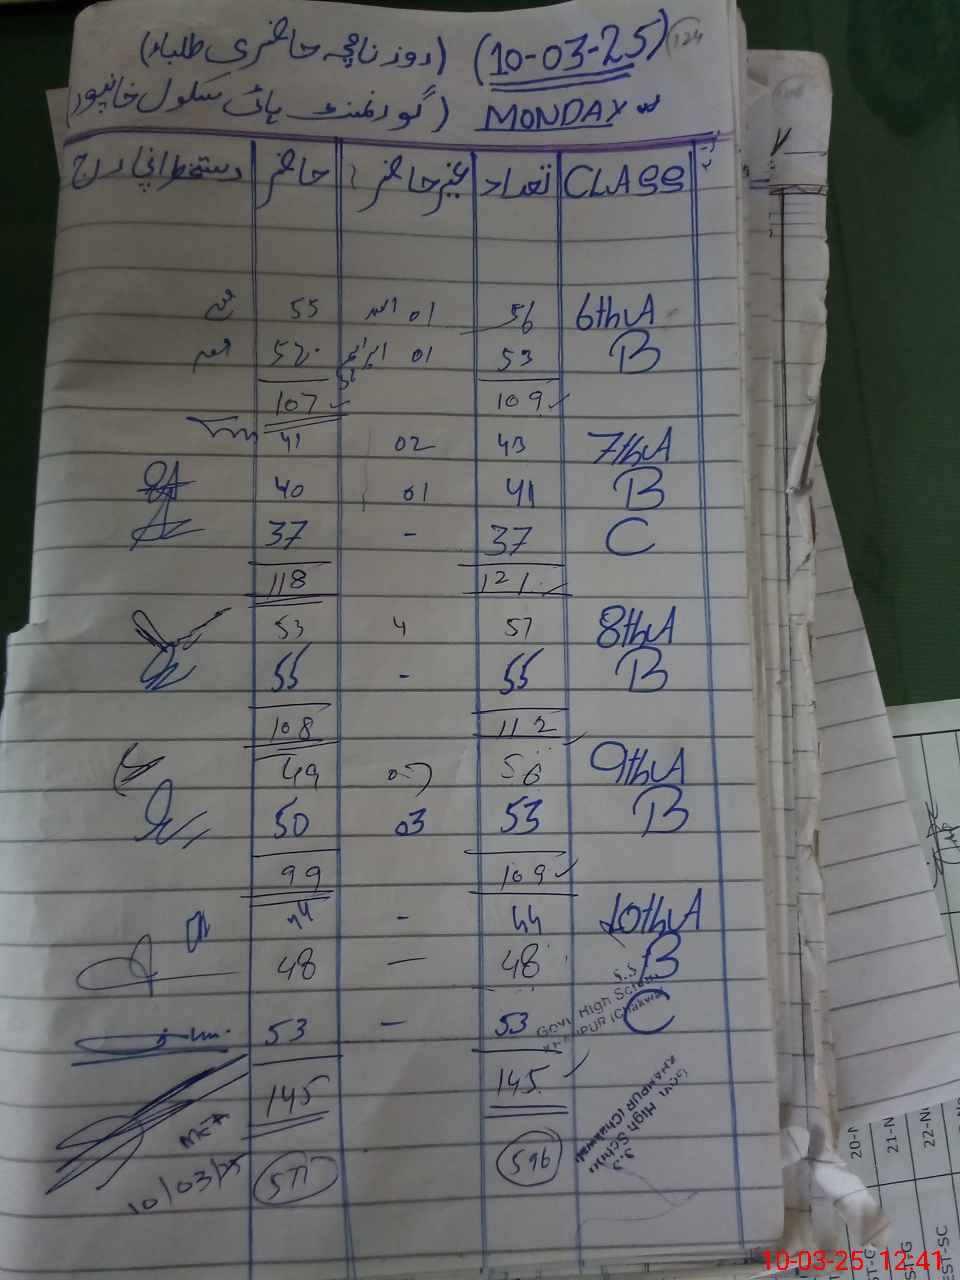 (10-03-25) (روزنامچہ حاضری طلباء) 124
MONDAY (گورنمنٹ ہائی سکول خانپور)
CLASS تعداد غیر حاضر حاضر دستخط انچارج
6th A 56 01 55
B 53 01 52
109 107
7th A 43 02 41
B 41 01 40
C 37 - 37
121 118
8th A 57 4 53
B 55 - 55
112 108
9th A 56 07 49
B 53 03 50
109 99
10th A 44 - 44
B 48 - 48
C 53 - 53
S.S
Govt High School
KHANPUR (Chakwal)
145 145
S.S
Govt High School
KHANPUR (Chakwal)
596 577
10/03/25
20-N
21-N
22-N
EST-SC
10-03-25 12:41